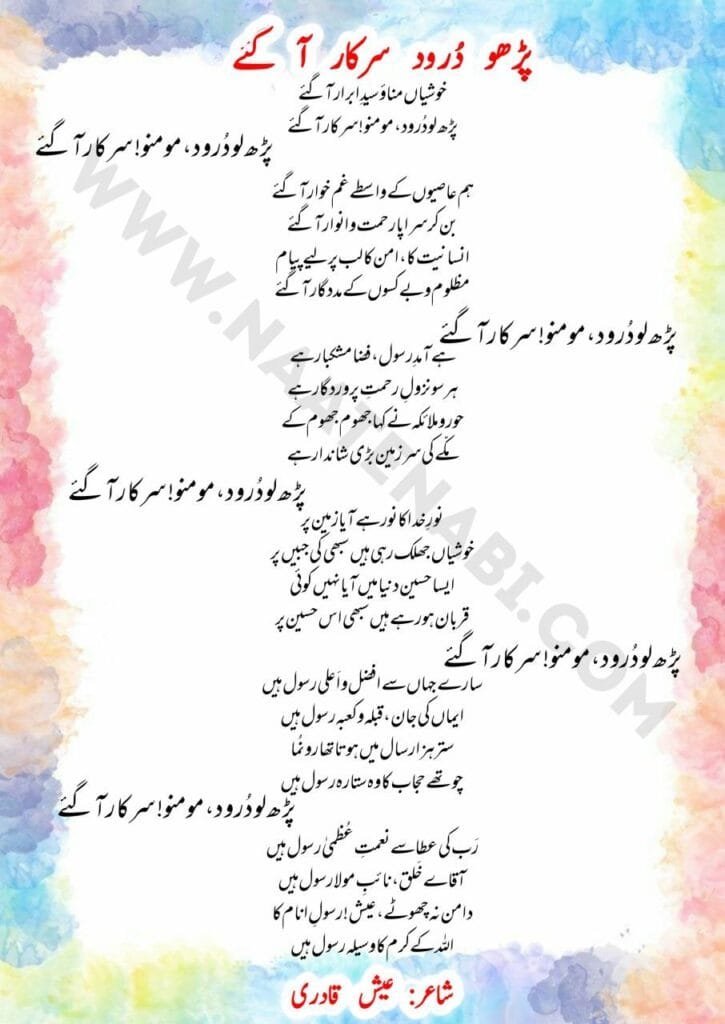 پڑھو دُرود سرکار آ گئے
خوشیاں مناؤ سیدِ ابرار آ گئے
پڑھ لو دُرود، مومنو! سرکار آ گئے
پڑھ لو دُرود، مومنو! سرکار آ گئے
ہم عاصیوں کے واسطے غم خوار آ گئے
بن کر سراپا رحمت و انوار آ گئے
انسانیت کا، امن کا لب پر لیے پیام
مظلوم و بے کسوں کے مددگار آ گئے
پڑھ لو دُرود، مومنو! سرکار آ گئے
ہے آمدِ رسول، فضا مشکبار ہے
ہر سو نزولِ رحمتِ پروردگار ہے
حور و ملائکہ نے کہا جھوم جھوم کے
مکّے کی سرزمین بڑی شاندار ہے
پڑھ لو دُرود، مومنو! سرکار آ گئے
نورِ خدا کا نور ہے آیا زمین پر
خوشیاں جھلک رہی ہیں سبھی کی جبیں پر
ایسا حسین دنیا میں آیا نہیں کوئی
قربان ہو رہے ہیں سبھی اس حسین پر
پڑھ لو دُرود، مومنو! سرکار آ گئے
سارے جہاں سے افضل و اَعلی رسول ہیں
ایماں کی جان، قبلہ و کعبہ رسول ہیں
ستر ہزار سال میں ہوتا تھا رونُما
چوتھے حجاب کا وہ ستارہ رسول ہیں
پڑھ لو دُرود، مومنو! سرکار آ گئے
رَب کی عطا سے نعمتِ عُظمیٰ رسول ہیں
آقاے خَلق، نائبِ مولا رسول ہیں
دامن نہ چھوٹے، عیش! رسولِ انام کا
اللہ کے کرم کا وسیلہ رسول ہیں
شاعر: عیش قادری
WWW.NAATENABI.COM